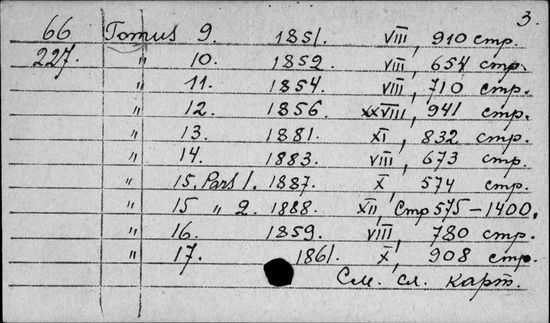 3.
66 Tomus 9. 1851. VIII, 910 стр.
227. " 10. 1852. VIII, 654 стр.
" 11. 1854. VIII, 710 стр.
" 12. 1856. XXVIII, 941 стр.
" 13. 1881. XI, 832 стр.
" 14. 1883. VIII, 673 стр.
" 15. Pars 1. 1887. X, 574 стр.
" 15 " 2. 1888. XII, Стр 575-1400.
" 16. 1859. VIII, 780 стр.
" 17. 1861. X, 908 стр.
См. сл. карт.